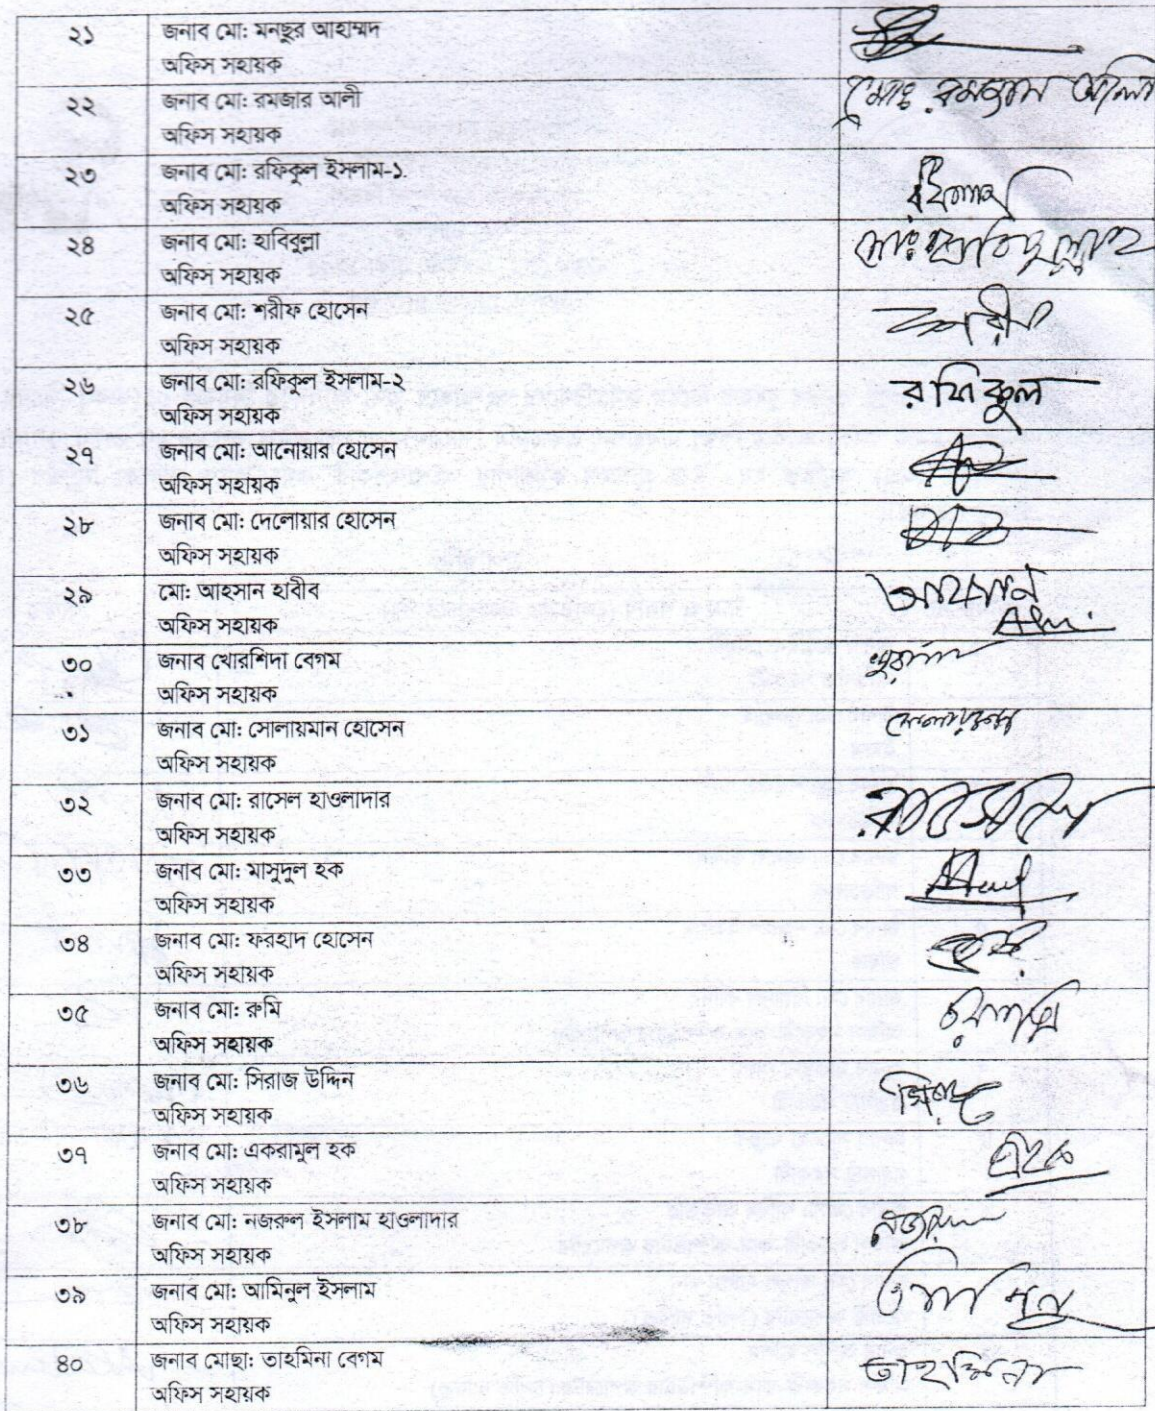 ২১ জনাব মো: মনছুর আহাম্মদ
অফিস সহায়ক
২২ জনাব মো: রমজার আলী মোঃ রমজান আলী
অফিস সহায়ক
২৩ জনাব মো: রফিকুল ইসলাম-১
অফিস সহায়ক
২৪ জনাব মো: হাবিবুল্লা
অফিস সহায়ক
২৫ জনাব মো: শরীফ হোসেন
অফিস সহায়ক
২৬ জনাব মো: রফিকুল ইসলাম-২ রফিকুল
অফিস সহায়ক
২৭ জনাব মো: আনোয়ার হোসেন
অফিস সহায়ক
২৮ জনাব মো: দেলোয়ার হোসেন
অফিস সহায়ক
২৯ মো: আহসান হাবীব আহসান
অফিস সহায়ক
৩০ জনাব খোরশিদা বেগম
অফিস সহায়ক
৩১ জনাব মো: সোলায়মান হোসেন
অফিস সহায়ক
৩২ জনাব মো: রাসেল হাওলাদার
অফিস সহায়ক
৩৩ জনাব মো: মাসুদুল হক
অফিস সহায়ক
৩৪ জনাব মো: ফরহাদ হোসেন
অফিস সহায়ক
৩৫ জনাব মো: রুমি
অফিস সহায়ক
৩৬ জনাব মো: সিরাজ উদ্দিন
অফিস সহায়ক
৩৭ জনাব মো: একরামুল হক
অফিস সহায়ক
৩৮ জনাব মো: নজরুল ইসলাম হাওলাদার
অফিস সহায়ক
৩৯ জনাব মো: আমিনুল ইসলাম
অফিস সহায়ক
৪০ জনাব মোছা: তাহমিনা বেগম তাহমিনা
অফিস সহায়ক